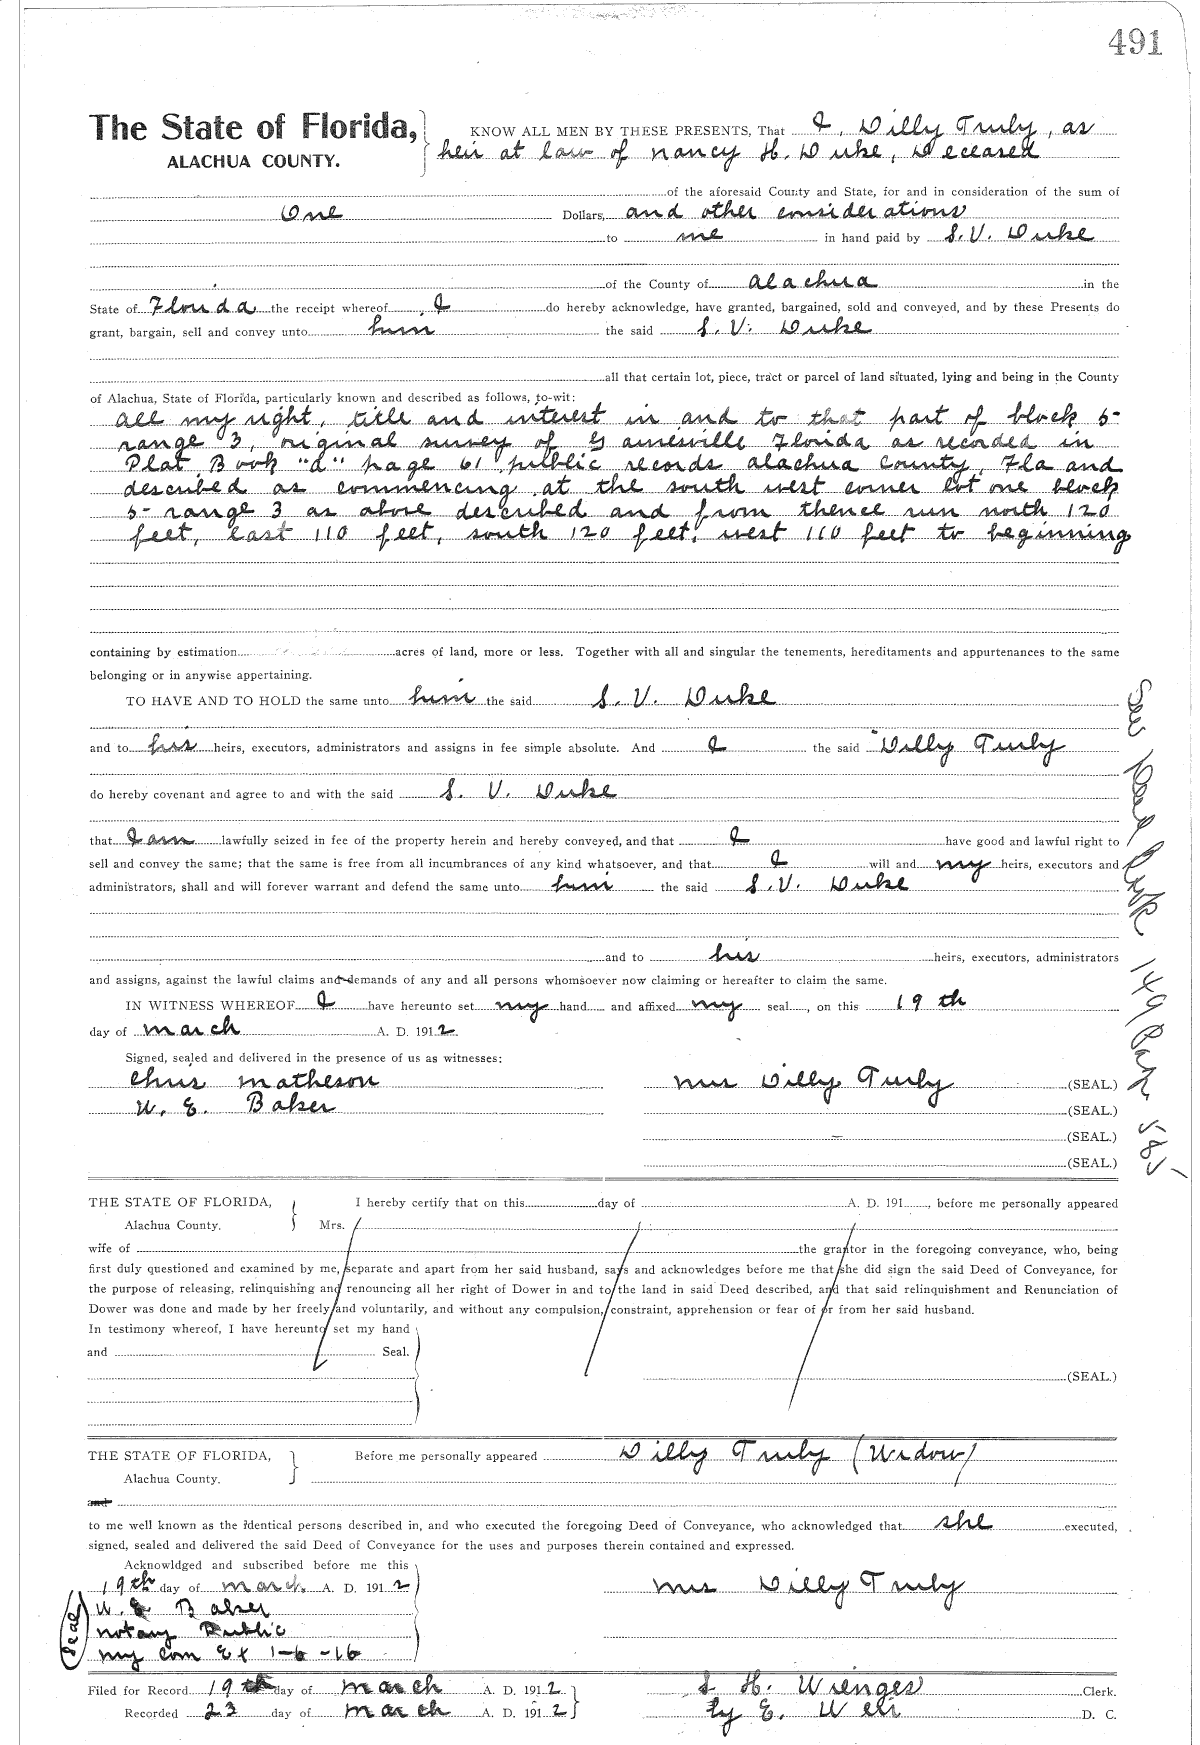 491
The State of Florida, KNOW ALL MEN BY THESE PRESENTS, That I, Dilly Truly, as
ALACHUA COUNTY. heir at law of Nancy H. Duke, Deceased
of the aforesaid County and State, for and in consideration of the sum of
One Dollars, and other considerations
to me in hand paid by S. V. Duke
of the County of Alachua in the
State of Florida the receipt whereof I do hereby acknowledge, have granted, bargained, sold and conveyed, and by these Presents do
grant, bargain, sell and convey unto him the said S. V. Duke
all that certain lot, piece, tract or parcel of land situated, lying and being in the County
of Alachua, State of Florida, particularly known and described as follows, to-wit:
all my right, title and interest in and to that part of block 5-
range 3, original survey of Gainesville Florida as recorded in
Plat Book "A" page 61 public records Alachua County, Fla and
described as commencing at the south west corner lot one block
5- range 3 as above described and from thence run north 120
feet, east 110 feet, south 120 feet, west 110 feet to beginning
containing by estimation acres of land, more or less. Together with all and singular the tenements, hereditaments and appurtenances to the same
belonging or in anywise appertaining.
TO HAVE AND TO HOLD the same unto him the said S. V. Duke
and to his heirs, executors, administrators and assigns in fee simple absolute. And I the said Dilly Truly
do hereby covenant and agree to and with the said S. V. Duke
that I am lawfully seized in fee of the property herein and hereby conveyed, and that I have good and lawful right to
sell and convey the same; that the same is free from all incumbrances of any kind whatsoever, and that I will and my heirs, executors and
administrators, shall and will forever warrant and defend the same unto him the said S. V. Duke
and to his heirs, executors, administrators
and assigns, against the lawful claims and demands of any and all persons whomsoever now claiming or hereafter to claim the same.
IN WITNESS WHEREOF I have hereunto set my hand and affixed my seal, on this 19th
day of March A. D. 1912
Signed, sealed and delivered in the presence of us as witnesses:
Chris Matheson Mrs Dilly Truly (SEAL.)
W. E. Baker (SEAL.)
(SEAL.)
(SEAL.)
See Deed Book 149 Page 585
THE STATE OF FLORIDA, I hereby certify that on this day of A. D. 191 , before me personally appeared
Alachua County. Mrs.
wife of the grantor in the foregoing conveyance, who, being
first duly questioned and examined by me, separate and apart from her said husband, says and acknowledges before me that she did sign the said Deed of Conveyance, for
the purpose of releasing, relinquishing and renouncing all her right of Dower in and to the land in said Deed described, and that said relinquishment and Renunciation of
Dower was done and made by her freely and voluntarily, and without any compulsion, constraint, apprehension or fear of or from her said husband.
In testimony whereof, I have hereunto set my hand
and Seal.
(SEAL.)
THE STATE OF FLORIDA, Before me personally appeared Dilly Truly (Widow)
Alachua County.
and
to me well known as the identical persons described in, and who executed the foregoing Deed of Conveyance, who acknowledged that she executed,
signed, sealed and delivered the said Deed of Conveyance for the uses and purposes therein contained and expressed.
Acknowldged and subscribed before me this
19th day of March A. D. 1912 Mrs Dilly Truly
W. E Baker
(Seal) Notary Public
my com Ex 1-6-16
Filed for Record 19th day of March A. D. 1912 S. H. Wienges Clerk.
Recorded 23 day of March A. D. 1912 By E. D. C.